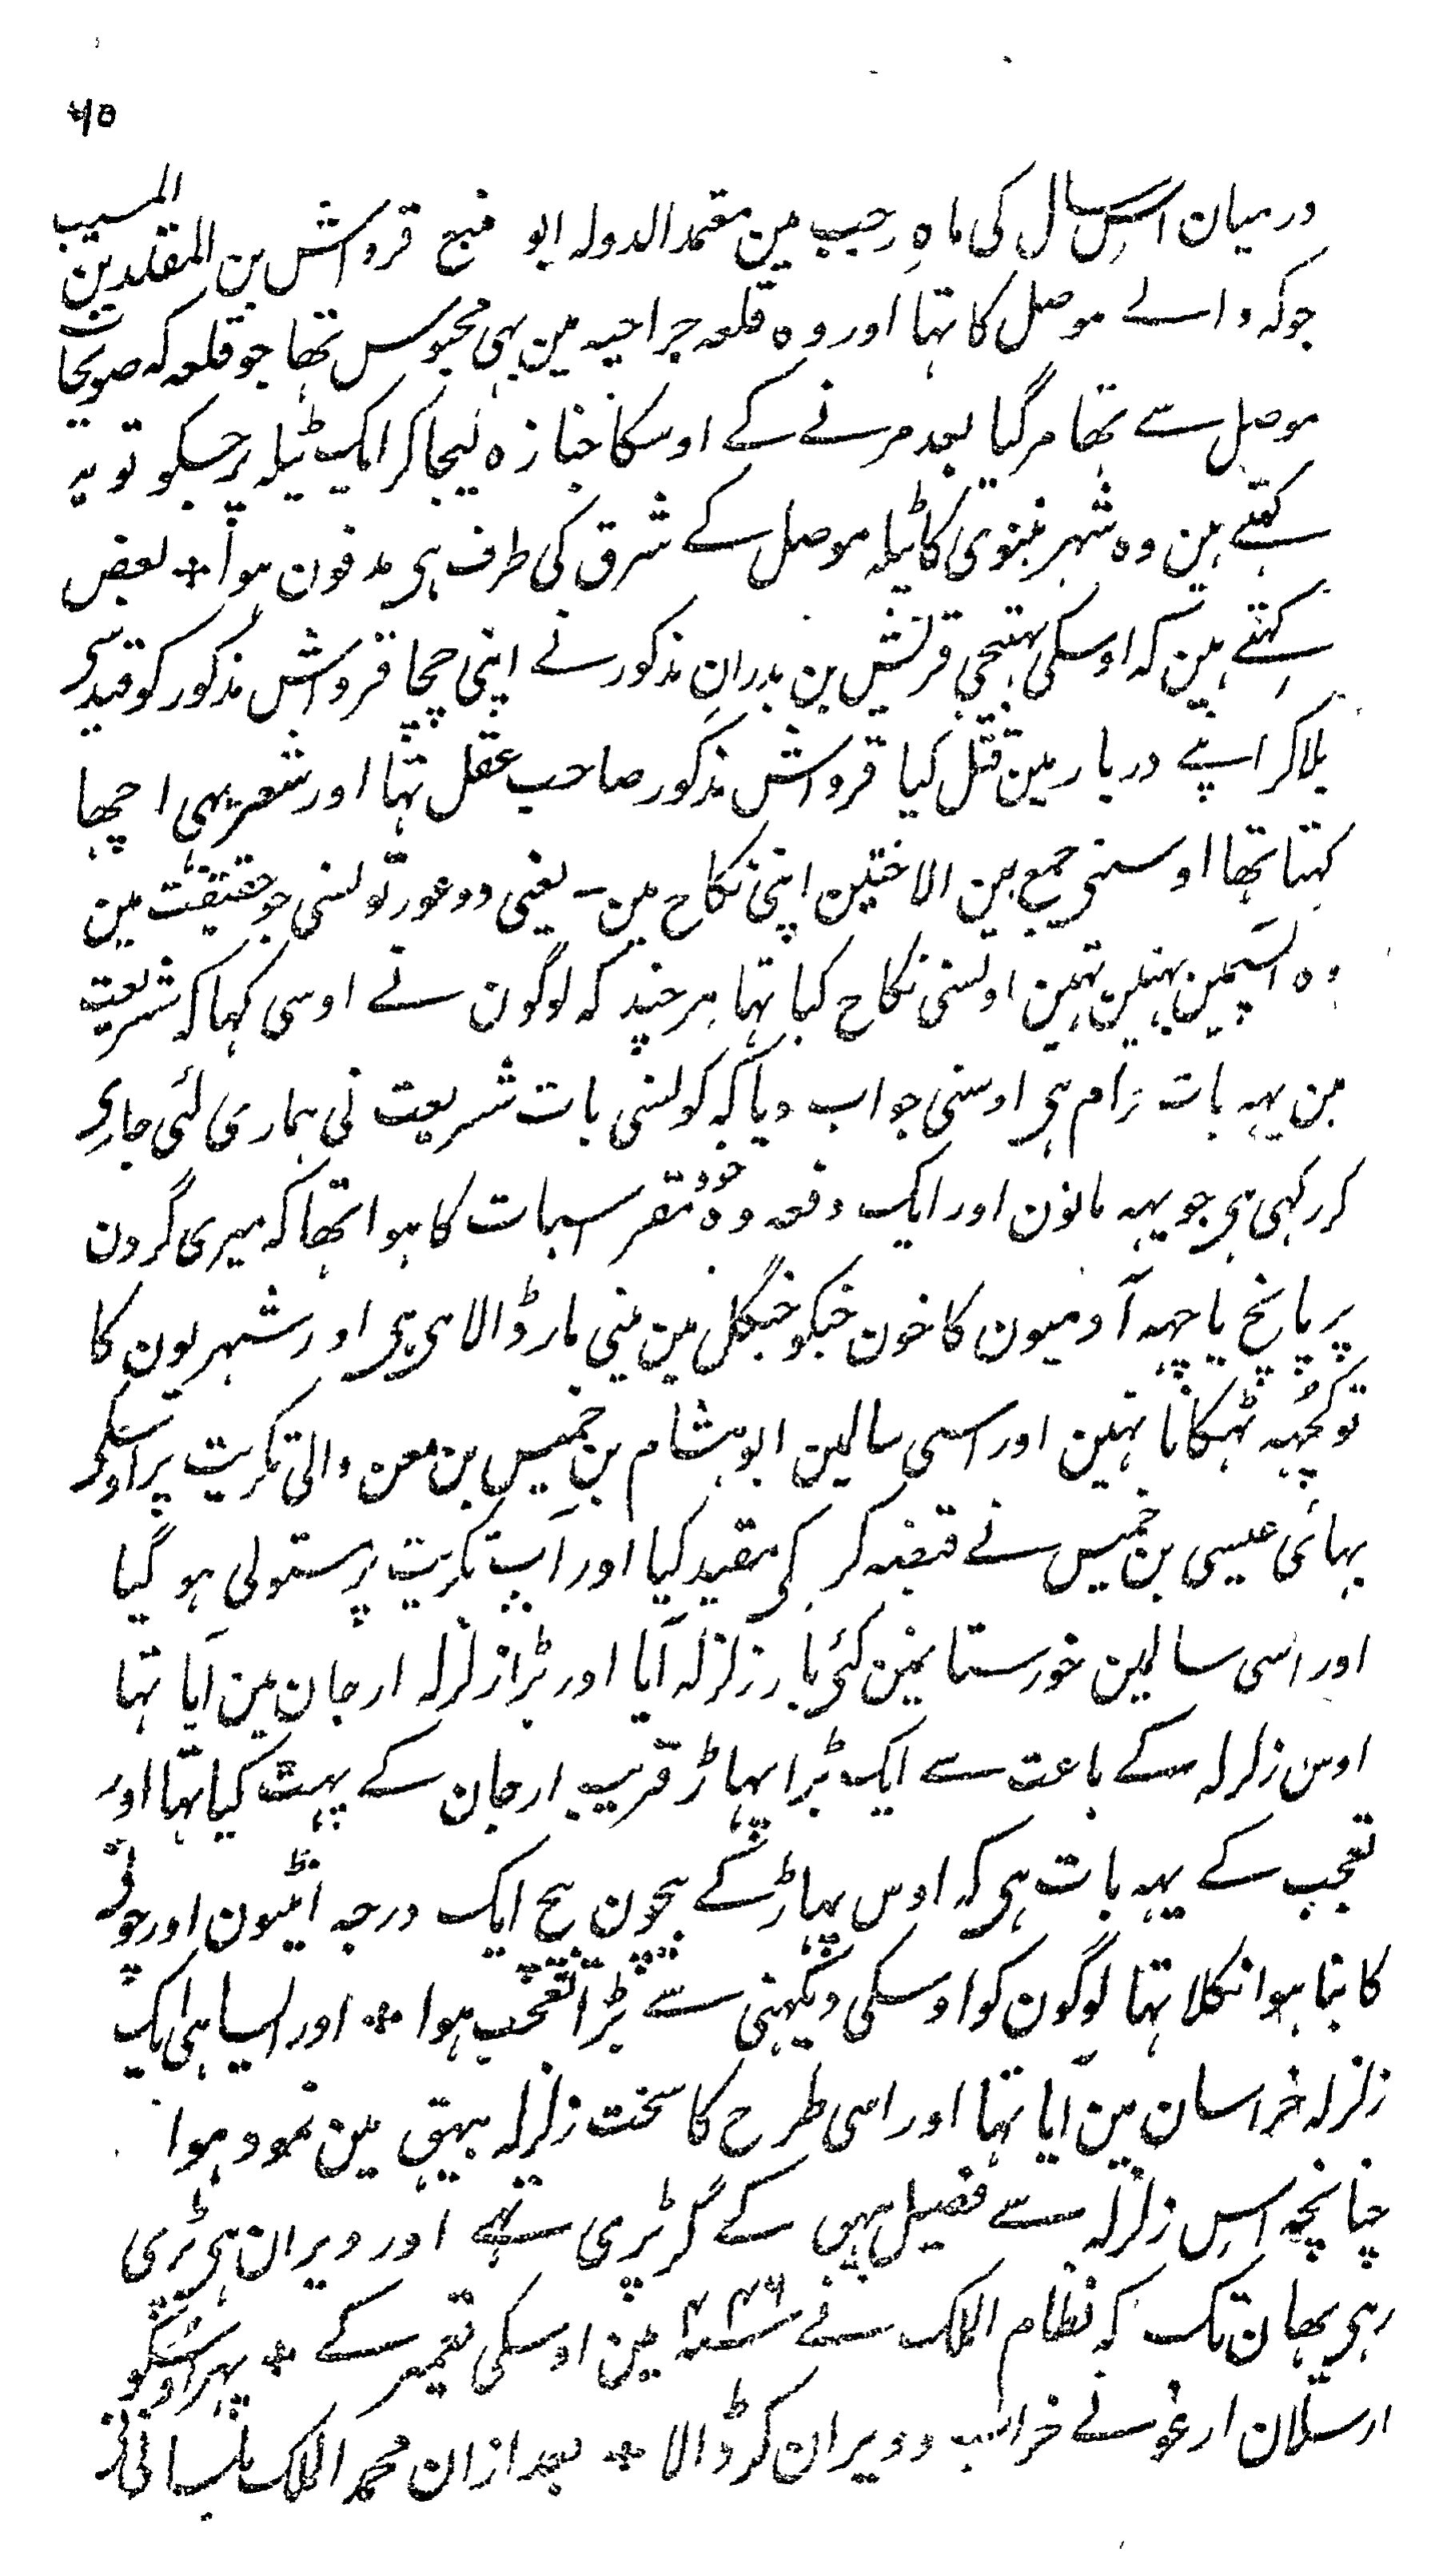 درمیان اس سال کی ماہِ رجب مین معتمد الدولہ ابو منیع قرواش بن المقلد بن المسیب
جوکہ والے موصل کا تہا اور وہ قلعہ جراحیہ مین بہی محبوس تھا جو قلعہ کہ صوبجات
موصل سے تھا مرگیا بعد مرنے کے اوسکا جنازہ لیجا کر ایک ٹیلہ پر جسکو توبہ
کہتے ہین وہ شہر نینوی کا ٹیلہ موصل کے شرق کی طرف ہی مدفون ہوا * بعض
کہتے ہین کہ اوسکی بہتیجی قریش بن بدران مذکور نے اپنی چچا قرواش مذکور کو قید سی
بلاکر اپنے دربار مین قتل کیا قرواش مذکور صاحب عقل تہا اور شعر بہی اچھا
کہتا تھا اوسنی جمع بین الاختین اپنی نکاح مین - یعنی دو عورتونسی جو حقیقت مین
وہ آپسمین بہنین تہین اونسی نکاح کیا تہا ہرچند کہ لوگون نے اوسی کہا کہ شریعت
مین یہہ بات حرام ہی اوسنی جواب دیا کہ کونسی بات شریعت نی ہماری لئی جاری
کر رکہی ہی جو یہہ مانون اور ایک دفعہ وہ خود مقر اسبات کا ہوا تھا کہ میری گردن
پر پانچ یا چہہ آدمیون کا خون جنکو جنگل مین مینی مار ڈالا ہی ہی اور شہریون کا
تو کچہہ ٹہکانا نہین اور اسی سالمین ابو ہشام بن خمیس بن معن والی تکریت پر اوسکی
بہائی عیسی بن خمیس نے قبضہ کر کی مقید کیا اور آپ تکریت پر مستولی ہو گیا
اور اسی سالمین خورستانمین کئی بار زلزلہ آیا اور بڑا زلزلہ ارجان مین آیا تہا
اوس زلزلہ کے باعث سے ایک بڑا پہاڑ قریب ارجان کے پہٹ گیا تہا اور
تعجب کے یہہ بات ہی کہ اوس پہاڑ کے بیچون بیچ ایک درجہ اینٹون اور چونی
کا بنا ہوا نکلا تہا لوگون کو اوسکی دیکہنی سے بڑا تعجب ہوا * اور ایسا ہی ایک
زلزلہ خراسان مین آیا تہا اور اسی طرح کا سخت زلزلہ بیہق مین نمود ہوا
چنانچہ اس زلزلہ سے فصیل بیہق کے گر پڑی تہے اور ویران ہی پڑی
رہی یھان تک کہ نظام الملک نے ۴۴۶ مین اوسکی تعمیر کے * پہر اوسکو
ارسلان ارغو نے خراب و ویران کر ڈالا * بعد ازان محمد الملک